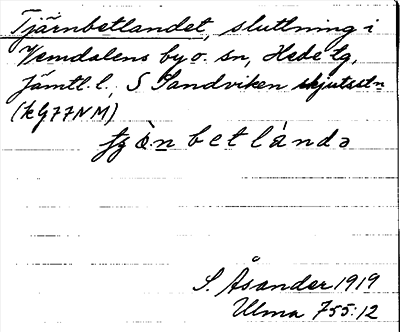 Tjärnbetlandet, sluttning i
Vemdalens by o. sn, Hede tg,
Jämtl. l., S Sandviken skjutsstn
(kG77NM)
betlánda
S. Åsander 1919
Ulma 755:12